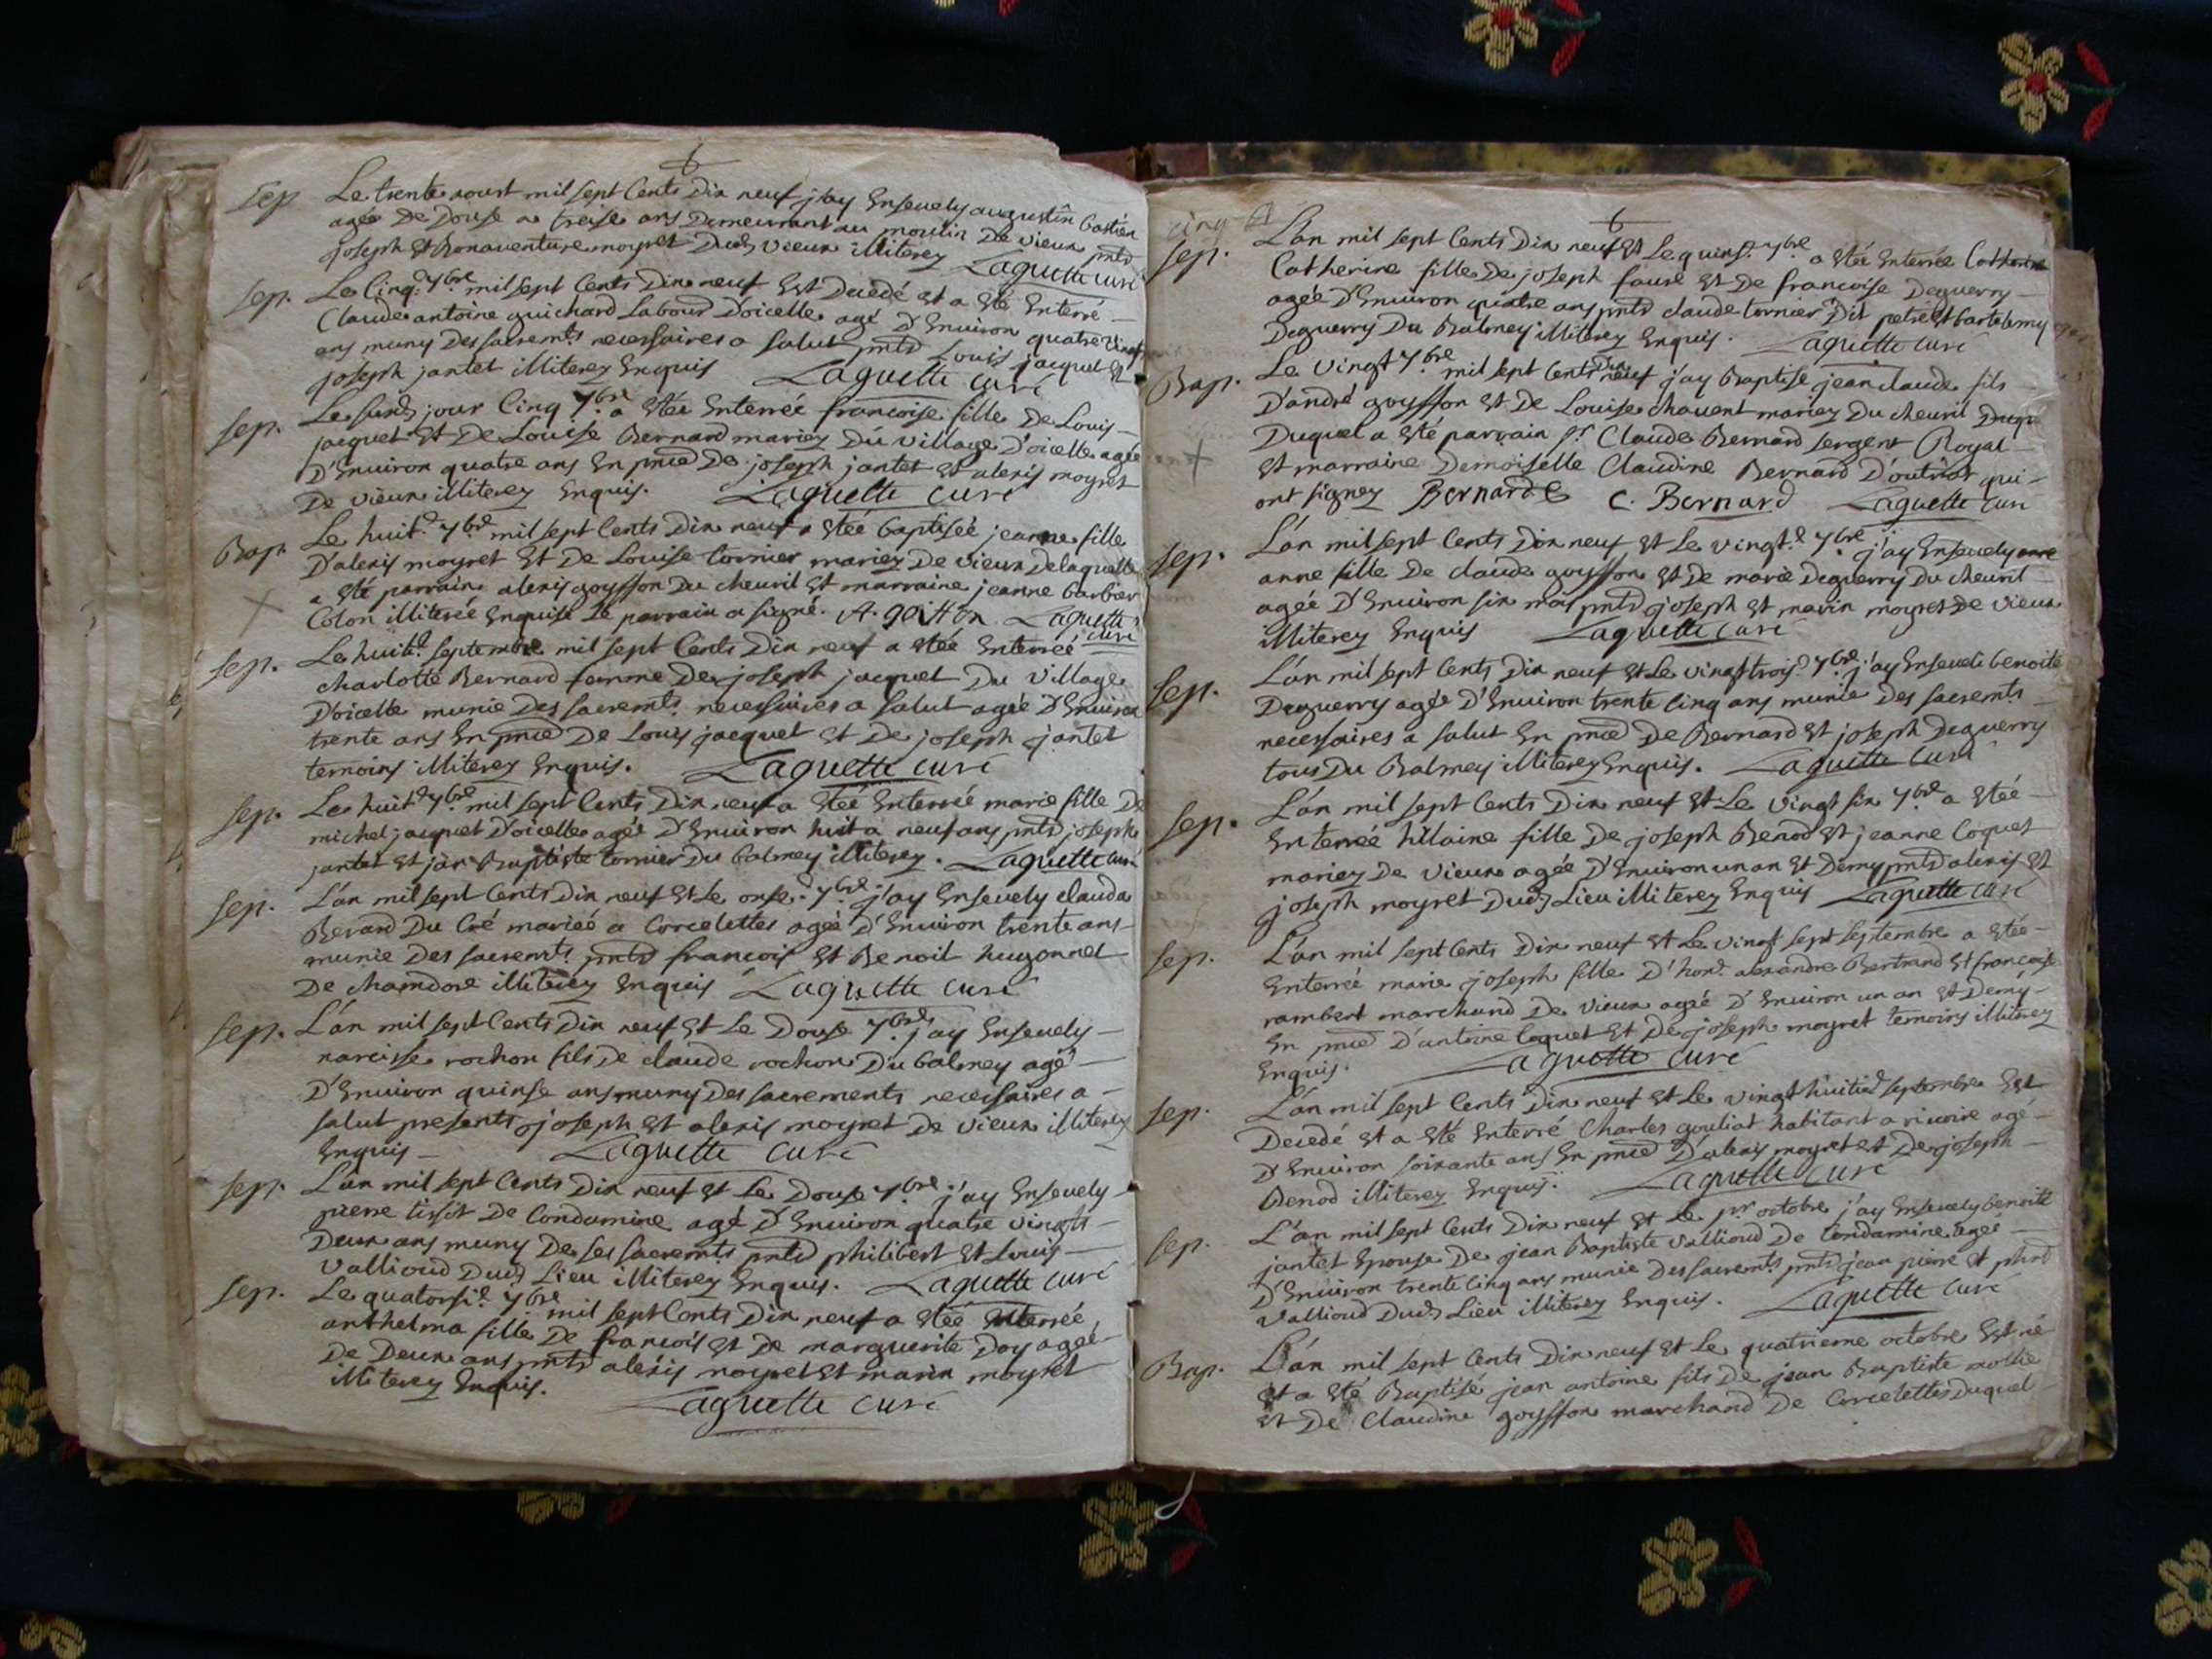 sep Le trente aoust mil sept Cents Dix neuf j'ay Ensevely augustin bastien
agée De Douse a treise ans Demeurant au moulin De vieux pnts
joseph Et Bonaventure moyret Dud. vieux illiterez Laguette curé
sep. Le Cinq.e 7bre mil sept Cents Dix neuf Est Decedé Et a Eté Enterré
Claude antoine guichard Labour. D'oicelle agé D'Environ quatre vingt
ans muny Des sacrem.ts necessaires a salut pnts Louis jacquet Et
joseph jantet illiterez Enquis Laguette curé
sep. Le susd. jour Cinq 7bre a Etée Enterrée francoise fille De Louis
jacquet Et De Louise Bernard mariez Du village D'oicelle agée
D'Environ quatre ans En pnce De joseph jantet Et alexis moyret
De vieux illiterez Enquis. Laguette curé
Bap. Le huit.e 7bre mil sept Cents Dix neuf a Etée baptisée jeanne fille
D'alexis moyret Et De Louise tornier mariez De vieux De laquelle
a Eté parrain alexis goyffon Du chevril Et marraine jeanne barbier
Colon illiterée Enquise Le parrain a signé. A. goiffon Laguette
curé
sep. Le huit.e septembre mil sept Cents Dix neuf a Etée Enterrée
charlotte Bernard femme De joseph jacquet Du Village
D'oicelle munie Des sacrem.ts necessaires a salut agée D'Environ
trente ans En pnce De Louis jacquet Et De joseph jantet
temoins illiterez Enquis. Laguette curé
sep. Le huit.e 7bre mil sept Cents Dix neuf a Etée Enterrée marie fille De
michel jacquet D'oicelle agée D'Environ huit a neuf ans pnts joseph
jantet Et jan Baptiste tornier Du balmey illiterez. Laguette curé
sep. L'an mil sept Cents Dix neuf Et Le onse.e 7bre j'ay Ensevely clauda
Berard Du Cré mariée a Corcelettes agée D'Environ trente ans
munie Des sacrem.ts pnts francois Et Benoit hugonnet
De chamdore illiterez Enquis Laguette curé
sep. L'an mil sept Cents Dix neuf Et Le Douse 7bre j'ay Ensevely
narcisse rochon fils De claude rochon Du balmey agé
D'Environ quinse ans muny Des sacrements necessaires a
salut presents joseph Et alexis moyret De vieux illiterez
Enquis Laguette curé
sep. L'an mil sept Cents Dix neuf Et Le Douse 7bre j'ay Ensevely
pierre tissot De Condamine agé D'Environ quatre vingts
Deux ans muny De ses sacrem.ts pnts philibert Et Louis
Vallioud Dud. Lieu illiterez Enquis. Laguette curé
sep. Le quatorsi.e 7bre mil sept Cents Dix neuf a Etée Enterrée
anthelma fille De francois Et De marguerite Doy agée
De Deux ans pnts alexis moyret Et marin moyret
illiterez Enquis.
Laguette curé
cinq
sep. L'an mil sept Cents Dix neuf Et Le quins.e 7bre a Etée Enterrée Catherine
Catherine fille De joseph faure Et De francoise Deguerry
agée D'Environ quatre ans pnts claude tornier Dit petit Et bartelemy
Deguerry Du Balmey illiterez Enquis. Laguette curé
Bap. Le vingt 7bre mil sept Cents Dix neuf j'ay Baptisé jean claude fils
D'andré goyffon Et De Louise chavent mariez Du chevril Duqu
Duquel a Eté parrain Sr Claude Bernard sergent Royal
Et marraine Demoiselle Claudine Bernard D'outriat qui
ont signez Bernard C. Bernard Laguette curé
sep. L'an mil sept Cents Dix neuf Et Le vingt.e 7bre j'ay Ensevely anne
anne fille De claude goyffon Et De marie Deguerry Du chevril
agée D'Environ six mois pnts joseph Et marin moyret De vieux
illiterez Enquis Laguette curé
sep. L'an mil sept Cents Dix neuf Et Le vingt trois.e 7bre j'ay Enseveli benoite
Deguerry agée D'Environ trente cinq ans munie Des sacrem.ts
necessaires a salut En pnce De Bernard Et joseph Deguerry
tous Du Balmey illiterez Enquis. Laguette curé
sep. L'an mil sept Cents Dix neuf Et Le vingt six 7bre a Etée
Enterrée hillaire fille De joseph Benod Et jeanne Coquet
mariez De vieux agée D'Environ un an Et Demy pnts alexis Et
joseph moyret Dud. Lieu illiterez Enquis Laguette curé
sep. L'an mil sept Cents Dix neuf Et Le vingt sept septembre a Etée
Enterrée marie joseph fille D'hon.e alexandre Bertrand Et francoise
rambert marchand De vieux agée D'Environ un an Et Demy
En pnce D'antoine Coquet Et De joseph moyret temoins illiterez
Enquis. Laguette curé
sep. L'an mil sept Cents Dix neuf Et Le vingt huitie.e septembre Est
Decedé Et a Eté Enterré Charles gouliat habitant a rivoire agé
D'Environ soixante ans En pnce D'alexis moyret Et De joseph
Benod illiterez Enquis. Laguette curé
sep. L'an mil sept Cents Dix neuf Et Le pr octobre j'ay Ensevely benoite
jantet Epouse De jean Baptiste Vallioud De Condamine agée
D'Environ trente cinq ans munie Des sacrem.ts pnts jean pierre Et phbert
Vallioud Dud. Lieu illiterez Enquis. Laguette curé
Bap. L'an mil sept Cents Dix neuf Et Le quatrieme octobre Est né
Et a Eté Baptisé jean antoine fils De jean Baptiste
Et De Claudine goyffon marchand De Corcelettes Duquel